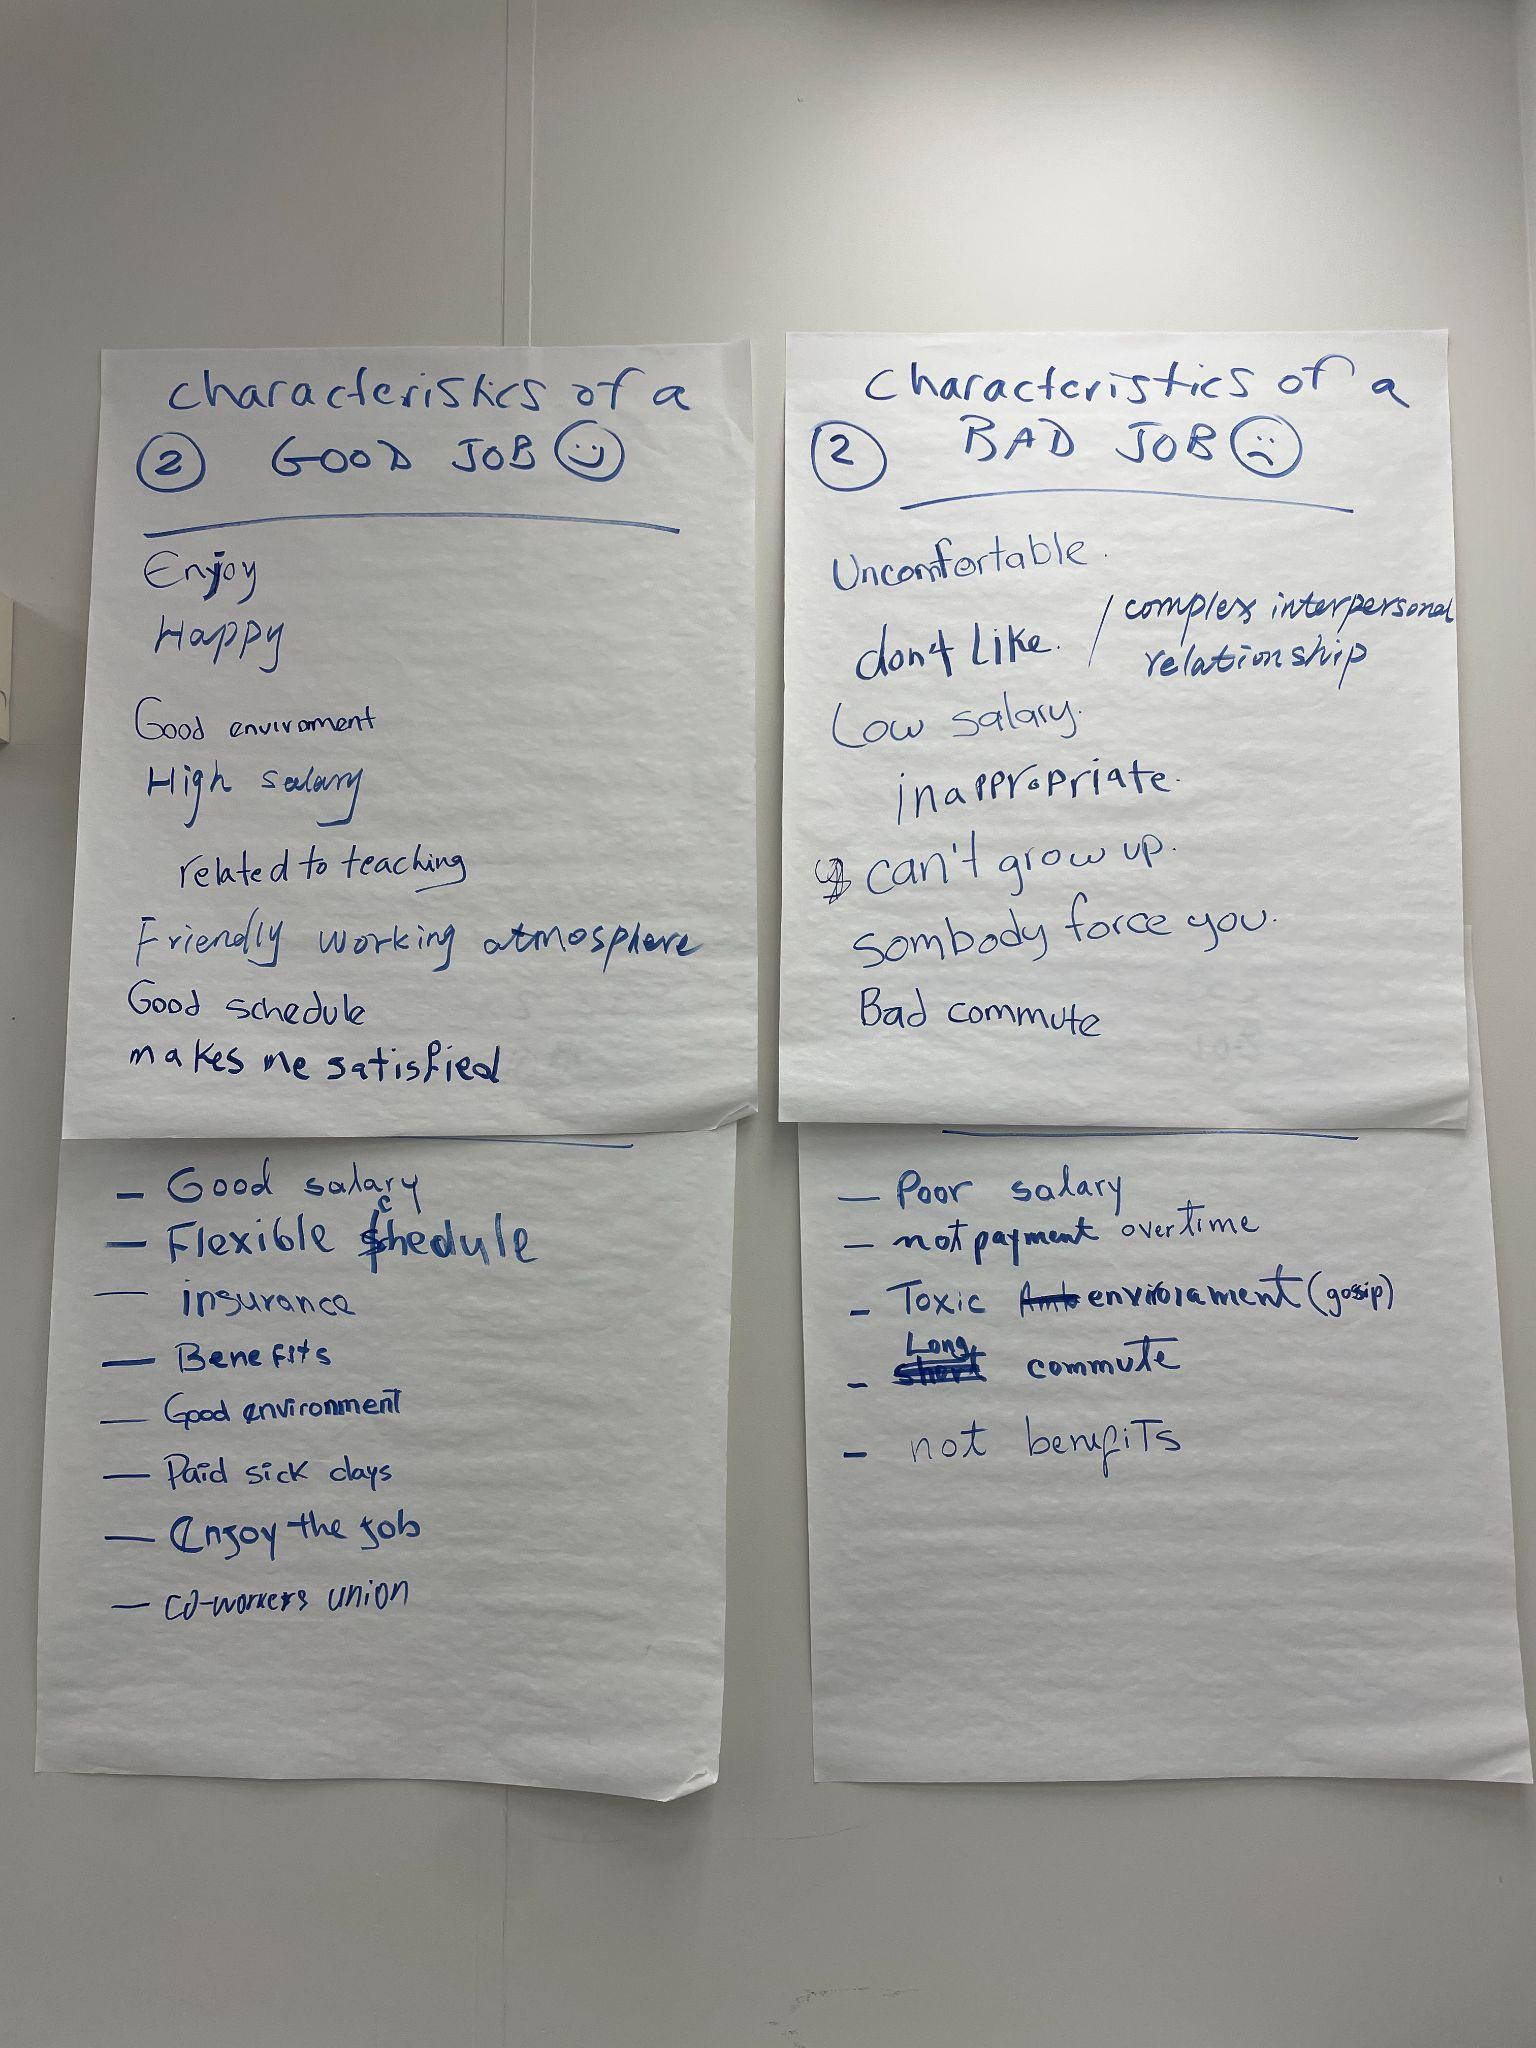 Characteristics of a
2 GOOD JOB
Enjoy
Happy
Good enviroment
High salary
related to teaching
Friendly working atmosphere
Good schedule
makes me satisfied
- Good salary
- Flexible Schedule
- insurance
- Benefits
- Good environment
- Paid sick days
- Enjoy the job
- co-workers union
Characteristics of a
2 BAD JOB
Uncomfortable.
don't Like. / complex interpersonal
relationship
Low salary.
inappropriate.
can't grow up.
Sombody force you.
Bad commute
- Poor salary
- not payment overtime
- Toxic envirorament (gossip)
- Long commute
- not benefits